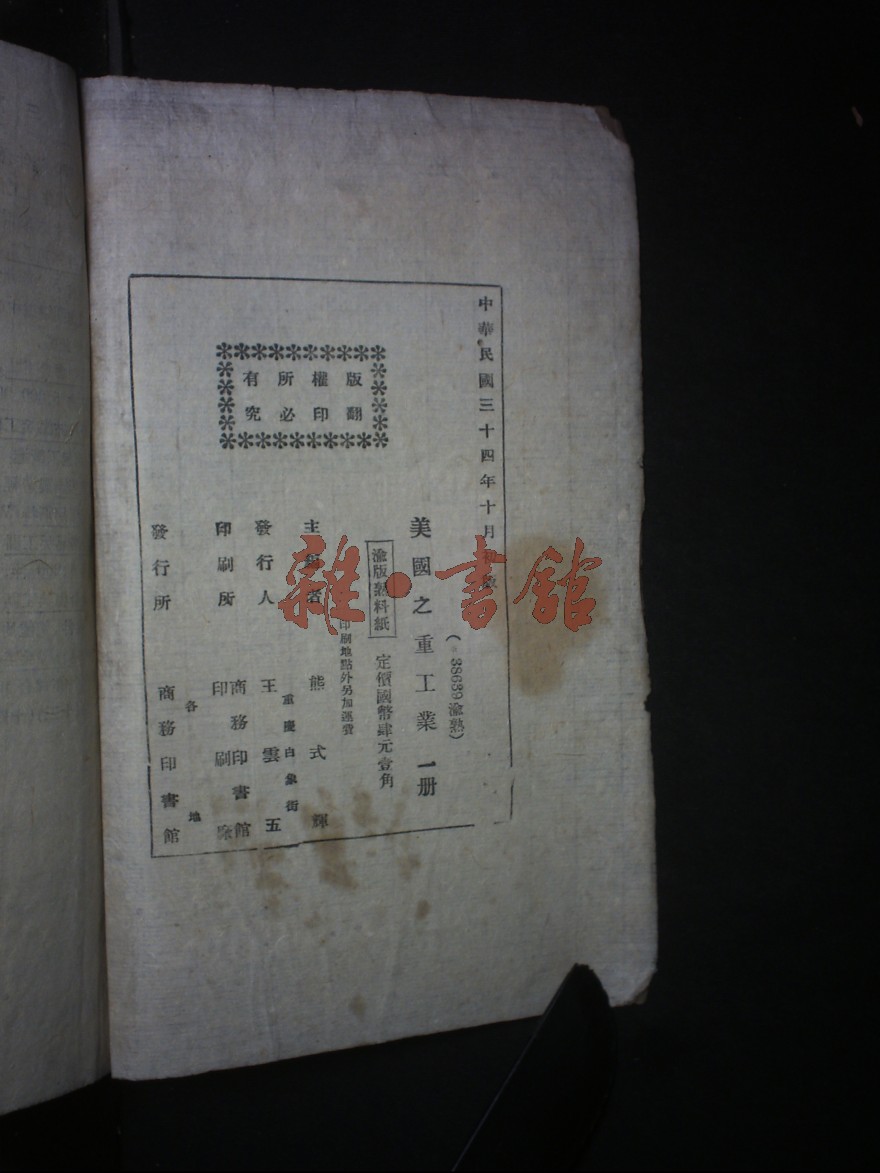 中華民國三十四年十月 版
(38639渝熟)
美國之重工業一册
渝版熟料紙
定價國幣肆元壹角
印刷地點外另加運費
主 者 熊式輝
重慶白象街
發行人 王雲五
印刷所 商務印書館
印刷
各地
發行所 商務印書館
版權所有
翻印必究
雜·書館